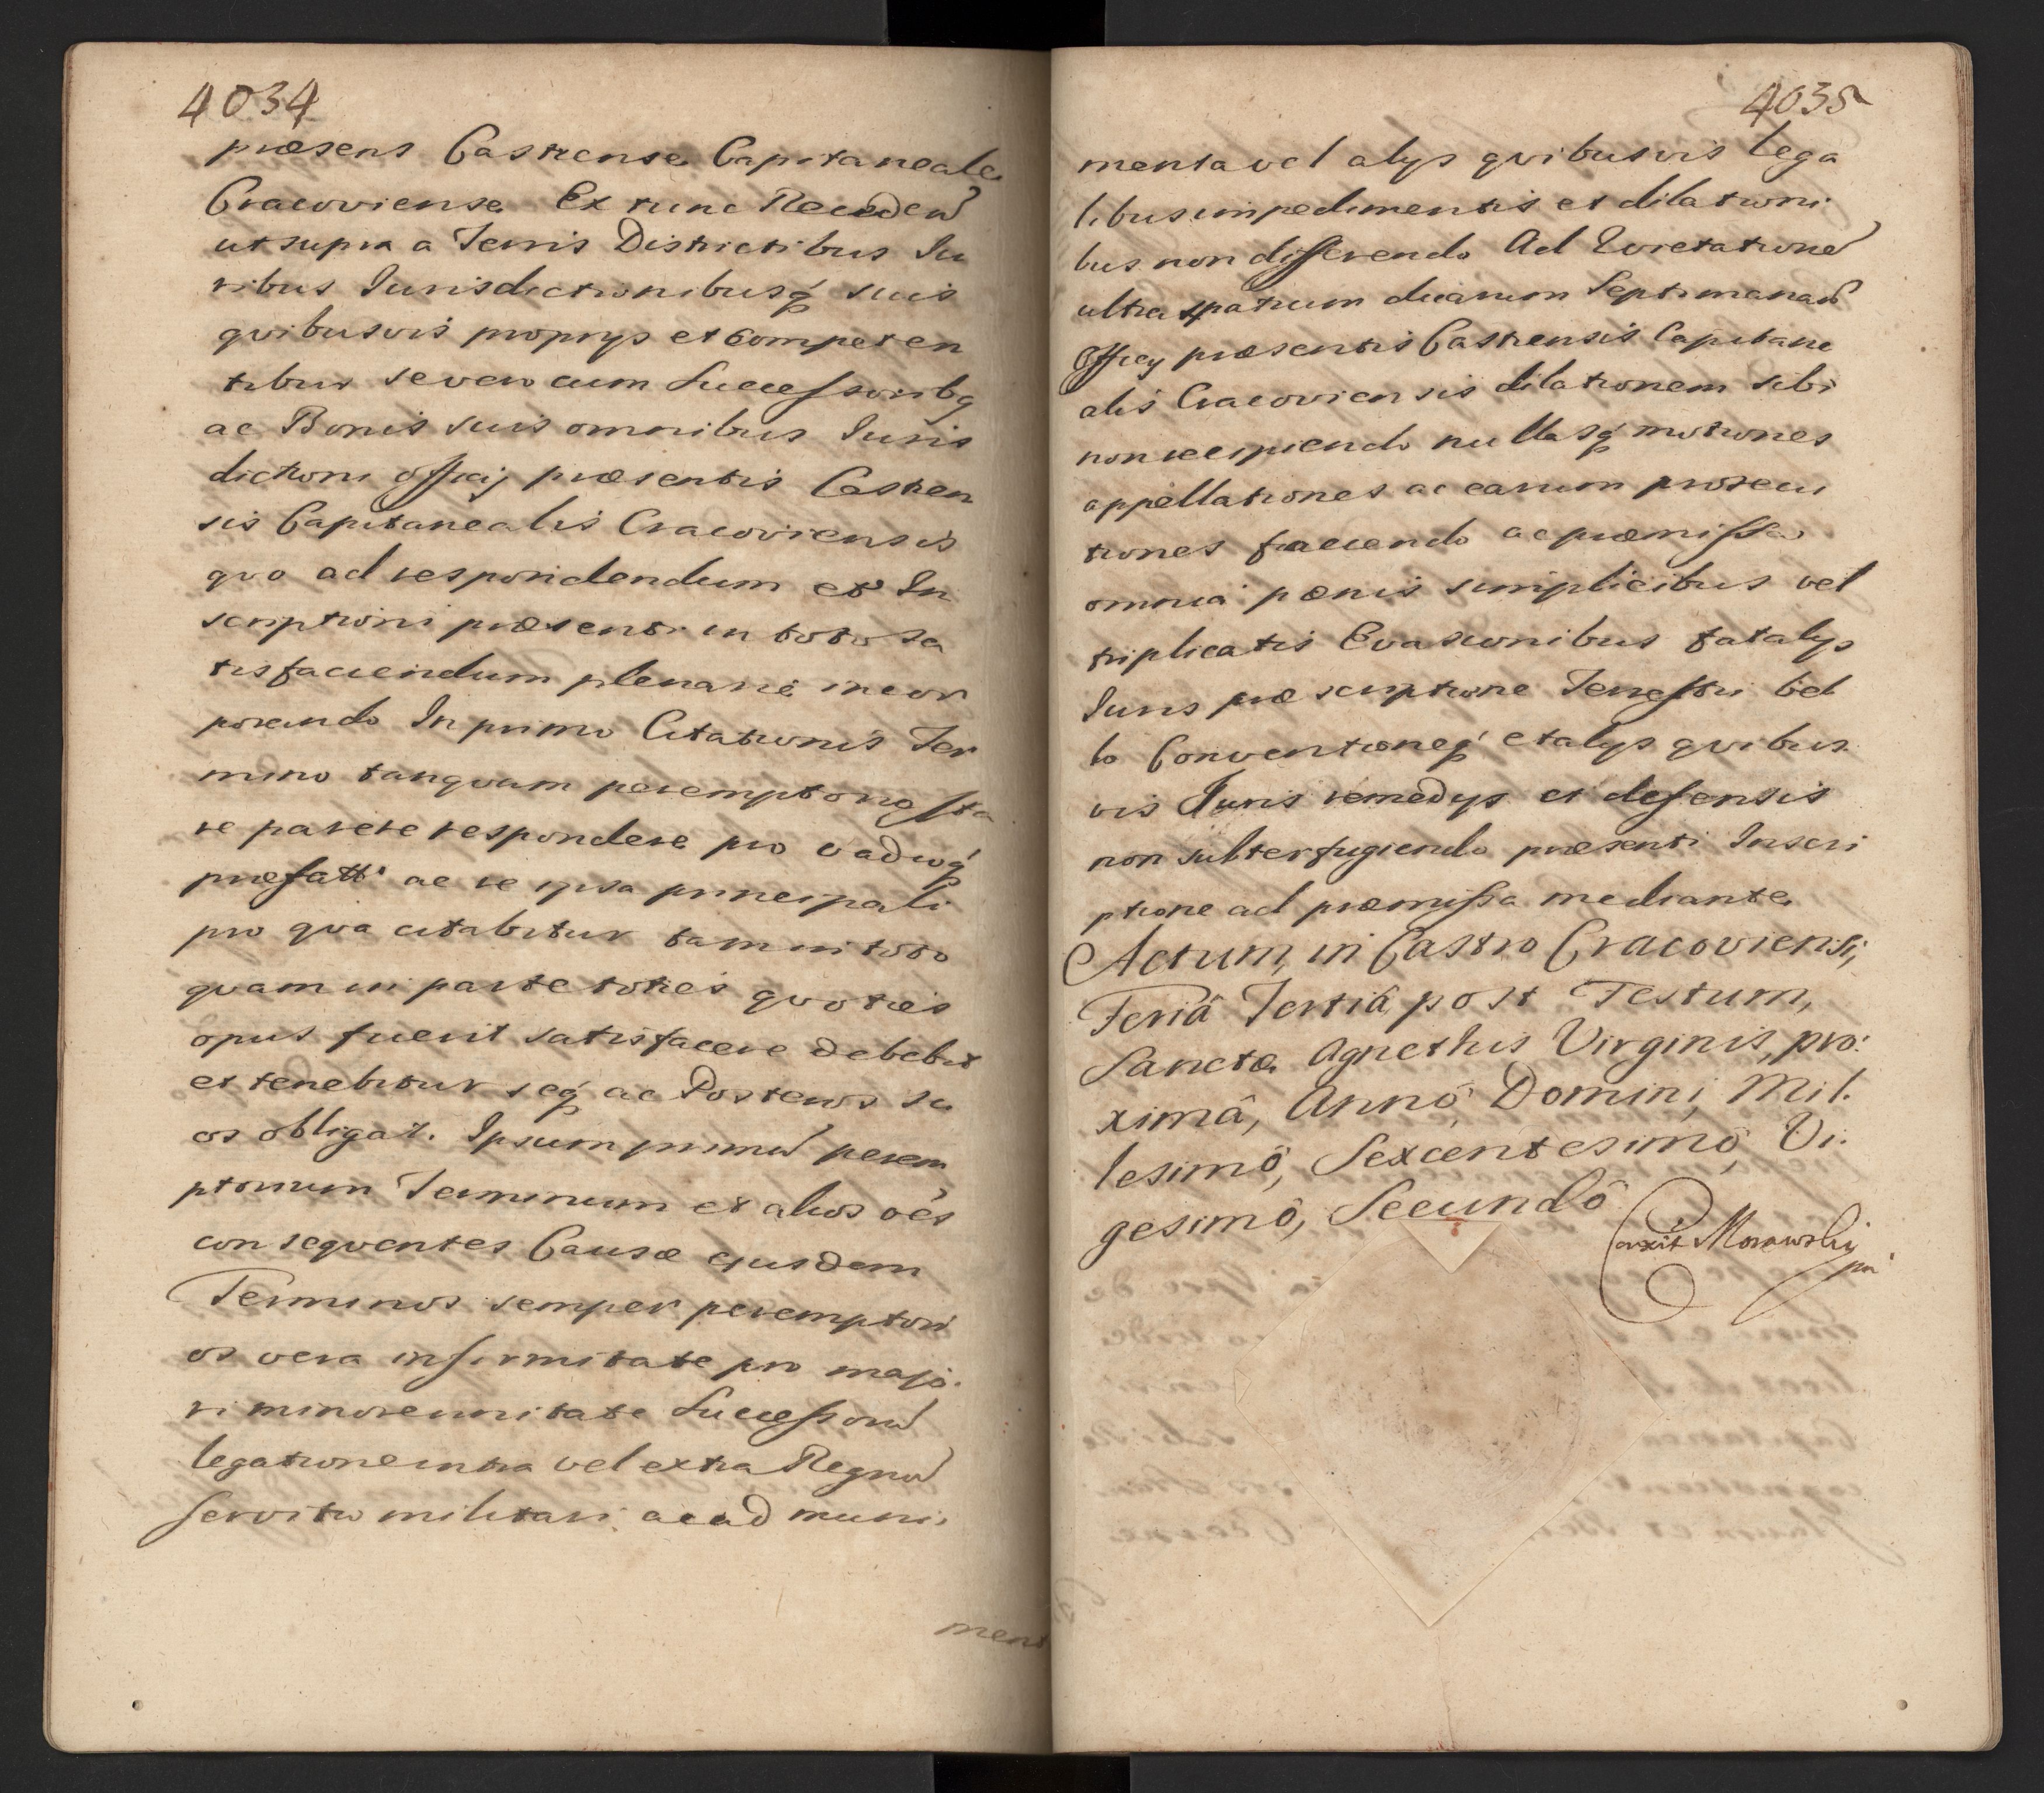 4034
præsens Castrense Capitaneale
Cracoviense Ex tunc Recedend
ut supra a Terris Districtibus Iu
ribus Iurisdictionibusq suis
qvibusvis proprys et competen
tibus se vero cum Successoribq
ac Bonis suis omnibus Iuris
dictioni officij præsentis Castren
sis Capitanealis Cracoviensis
qvo ad respondendum et In
scriptioni præsenti in toto sa
tisfaciendum plenarie incor
porando In primo Citationis Ter
mino tanqvam peremptorio sta
re parere respondere pro vadioq
præfatto ac re ipsa principali
pro qva citabitur tam in toto
qvam in parte toties qvoties
opus fuerit satisfacere debebit
et tenebitur seq ac Posteros su
os obligat. Ipsum primu perem
ptorium Terminum et alios oes
conseqventes Causæ ejusdem
Terminos semper peremptori
os vera infirmitate pro majo.
ri minorennitate Successoru
legatione intra vel extra Regnu
servitio militari ac ad muni.
ment
4035
menta vel alys qvibusvis lega
libus impedimentis et dilationi
bus non differendo Ad Evictatione
ultra spatium duarum Septimanaru
Officy præsentis Castrensis Capitane
alis Cracoviensis dilationem sibi
non recipiendo nullasq motiones
appellationes ac earum prosecu
tiones faciendo ac præmissa
omnia pænis simplicibus vel
triplicatis Evasionibus fatalys
Iuris præscriptione Terrestri bel
lo Conventioneq et alys qvibus
vis Iuris remedys et defensis
non subterfugiendo præsenti Inscri
ptione ad præmissa mediante
Actum, in Castro Cracoviensi,
Feriâ Tertiâ post Festum,
Sanctæ Agnethis Virginis, pro:
ximâ, Annô Domini, Mil.
lesimô, Sexcentesimô, Vi.
gesimô, Secundô
Corexit Morawski